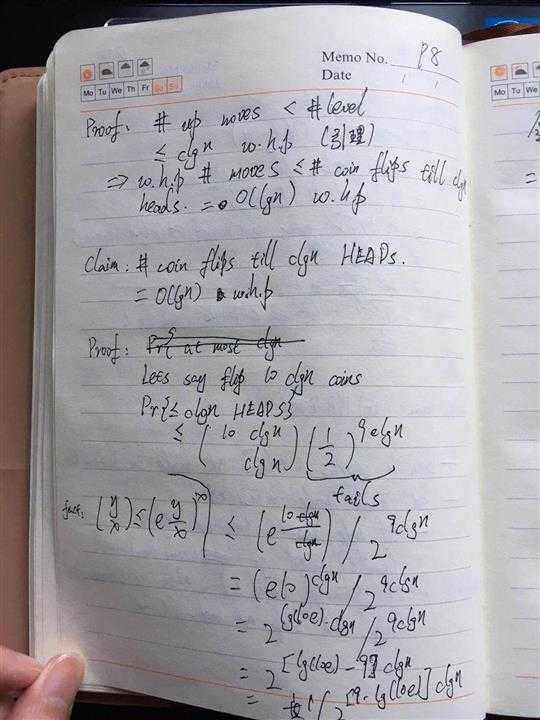 Memo No. P8
Date
Mo Tu We Th Fr Sa Su
Mo Tu We
Proof: # up moves < # level
≤ clgn w.h.p (引理)
⇒ w.h.p # moves ≤ # coin flips till clgn
heads. = O(lgn) w.h.p
Claim: # coin flips till clgn HEADs.
= O(lgn) w.h.p
Proof: Pr{ at most clgn
Lets say flip 10 clgn coins
Pr{≤ clgn HEADS}
≤ (10 clgn / clgn) (1/2)^9clgn
tails
fact: (y/x) ≤ (e y/x)^x
≤ (e 10 clgn / clgn) / 2^9clgn
= (e10)^clgn / 2^9clgn
= 2^lg(10e)·clgn / 2^9clgn
= 2^[lg(10e) - 9] clgn
= 1 / 2^[9 - lg(10e)] clgn